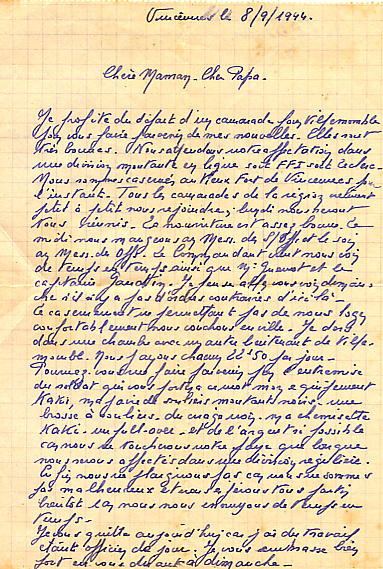 Vincennes le 8/9/1944.
Chère Maman - Cher Papa.
Je profite du départ d'un camarade pour Villemomble
pour vous faire parvenir de mes nouvelles - Elles sont
très bonnes. Nous attendons notre affectation dans
une division montante en ligne soit FFI soit Leclerc -
Nous sommes casernés au vieux Fort de Vincennes pour
l'instant - Tous les camarades de la région viennent
petit à petit nous rejoindre, lundi nous serons
tous réunis - La nourriture est assez bonne. Le
midi nous mangeons au Mess. de S/Off. et le soir
au Mess. de Off. Le Commandant vient nous voir
de temps en temps ainsi que M. et le
capitaine Je pense aller vous voir demain
che s'il n'y a pas d'ordres contraires d'ici là -
Le casernement ne permettant pas de nous loger
confortablement nous couchons en ville - Je dors
dans une chambre avec un autre lieutenant de Ville-
momble. Nous payons chacun 22f50 par jour -
Pourriez-vous me faire parvenir par l'entremise
du soldat qui vous portera ce mot mon équipement
Kaki, ma paire de souliers montants noirs - une
brosse à souliers - du cirage noir, ma chemisette
Kaki - un pull-over - et de l'argent si possible
car nous ne toucherons notre paye que lorsque
nous serons affectés dans une division régulière.
Enfin nous ne plaignons pas car nous ne sommes
pas malheureux et nous espérons tous partir
bientôt car nous nous ennuyons de temps en
temps -
Je vous quitte aujourd'hui car j'ai du travail
étant officier de jour. Je vous embrasse bien
fort en vous disant à dimanche -